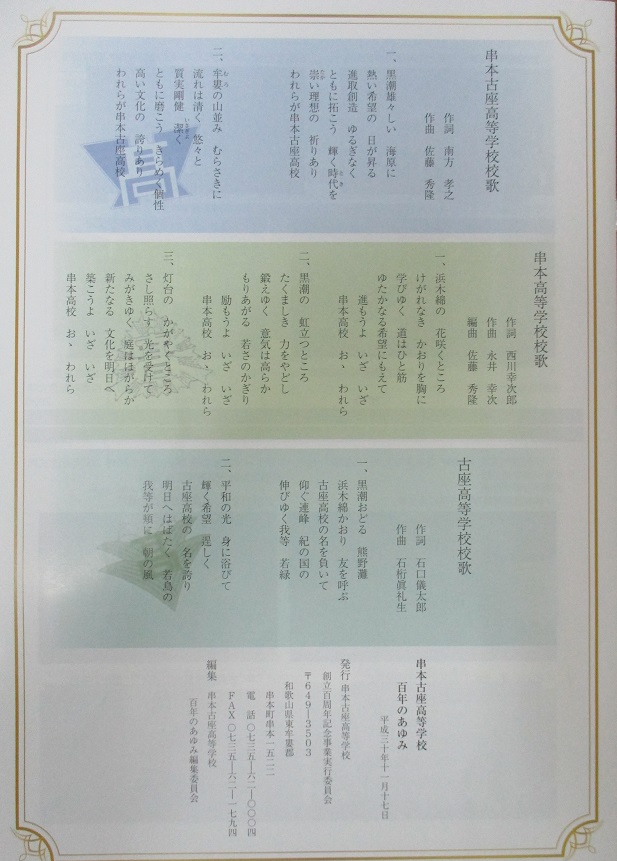 串本古座高等学校校歌
作詞　南方　孝之
作曲　佐藤　秀隆
一、黒潮雄々しい　海原に
熱い希望の　日が昇る
進取創造　ゆるぎなく
ともに拓こう　輝く時代を
とき
崇い理想の　祈りあり
たか
われらが串本古座高校
二、牟婁の山並み　むらさきに
むろ
流れは清く　悠々と
質実剛健　潔く
いさぎよ
ともに磨こう　きらめく個性
高い文化の　誇りあり
われらが串本古座高校
高
串本高等学校校歌
作詞　西川幸次郎
作曲　永井　幸次
編曲　佐藤　秀隆
一、浜木綿の　花咲くところ
けがれなき　かおりを胸に
学びゆく　道はひと筋
ゆたかなる希望にもえて
進もうよ　いざ　いざ
串本高校　お丶　われら
二、黒潮の　虹立つところ
たくましき　力をやどし
鍛えゆく　意気は高らか
もりあがる　若さのかぎり
励もうよ　いざ　いざ
串本高校　お丶　われら
三、灯台の　かがやくところ
さし照らす　光を受けて
みがきゆく　庭はほがらか
新たなる　文化を明日へ
築こうよ　いざ　いざ
串本高校　お丶　われら
古座高等学校校歌
作詞　石口儀太郎
作曲　石桁眞礼生
一、黒潮おどる　熊野灘
浜木綿かおり　友を呼ぶ
古座高校の名を負いて
仰ぐ連峰　紀の国の
伸びゆく我等　若緑
二、平和の光　身に浴びて
輝く希望　逞しく
古座高校の　名を誇り
明日へはばたく　若鳥の
我等が頬に　朝の風
串本古座高等学校
百年のあゆみ
平成三十年十一月十七日
発行　串本古座高等学校
創立百周年記念事業実行委員会
〒６４９―３５０３
和歌山県東牟婁郡
串本町串本一五二二
電　話　〇七三五―六二―〇〇〇四
ＦＡＸ　〇七三五―六二―一七九四
編集　串本古座高等学校
百年のあゆみ編集委員会